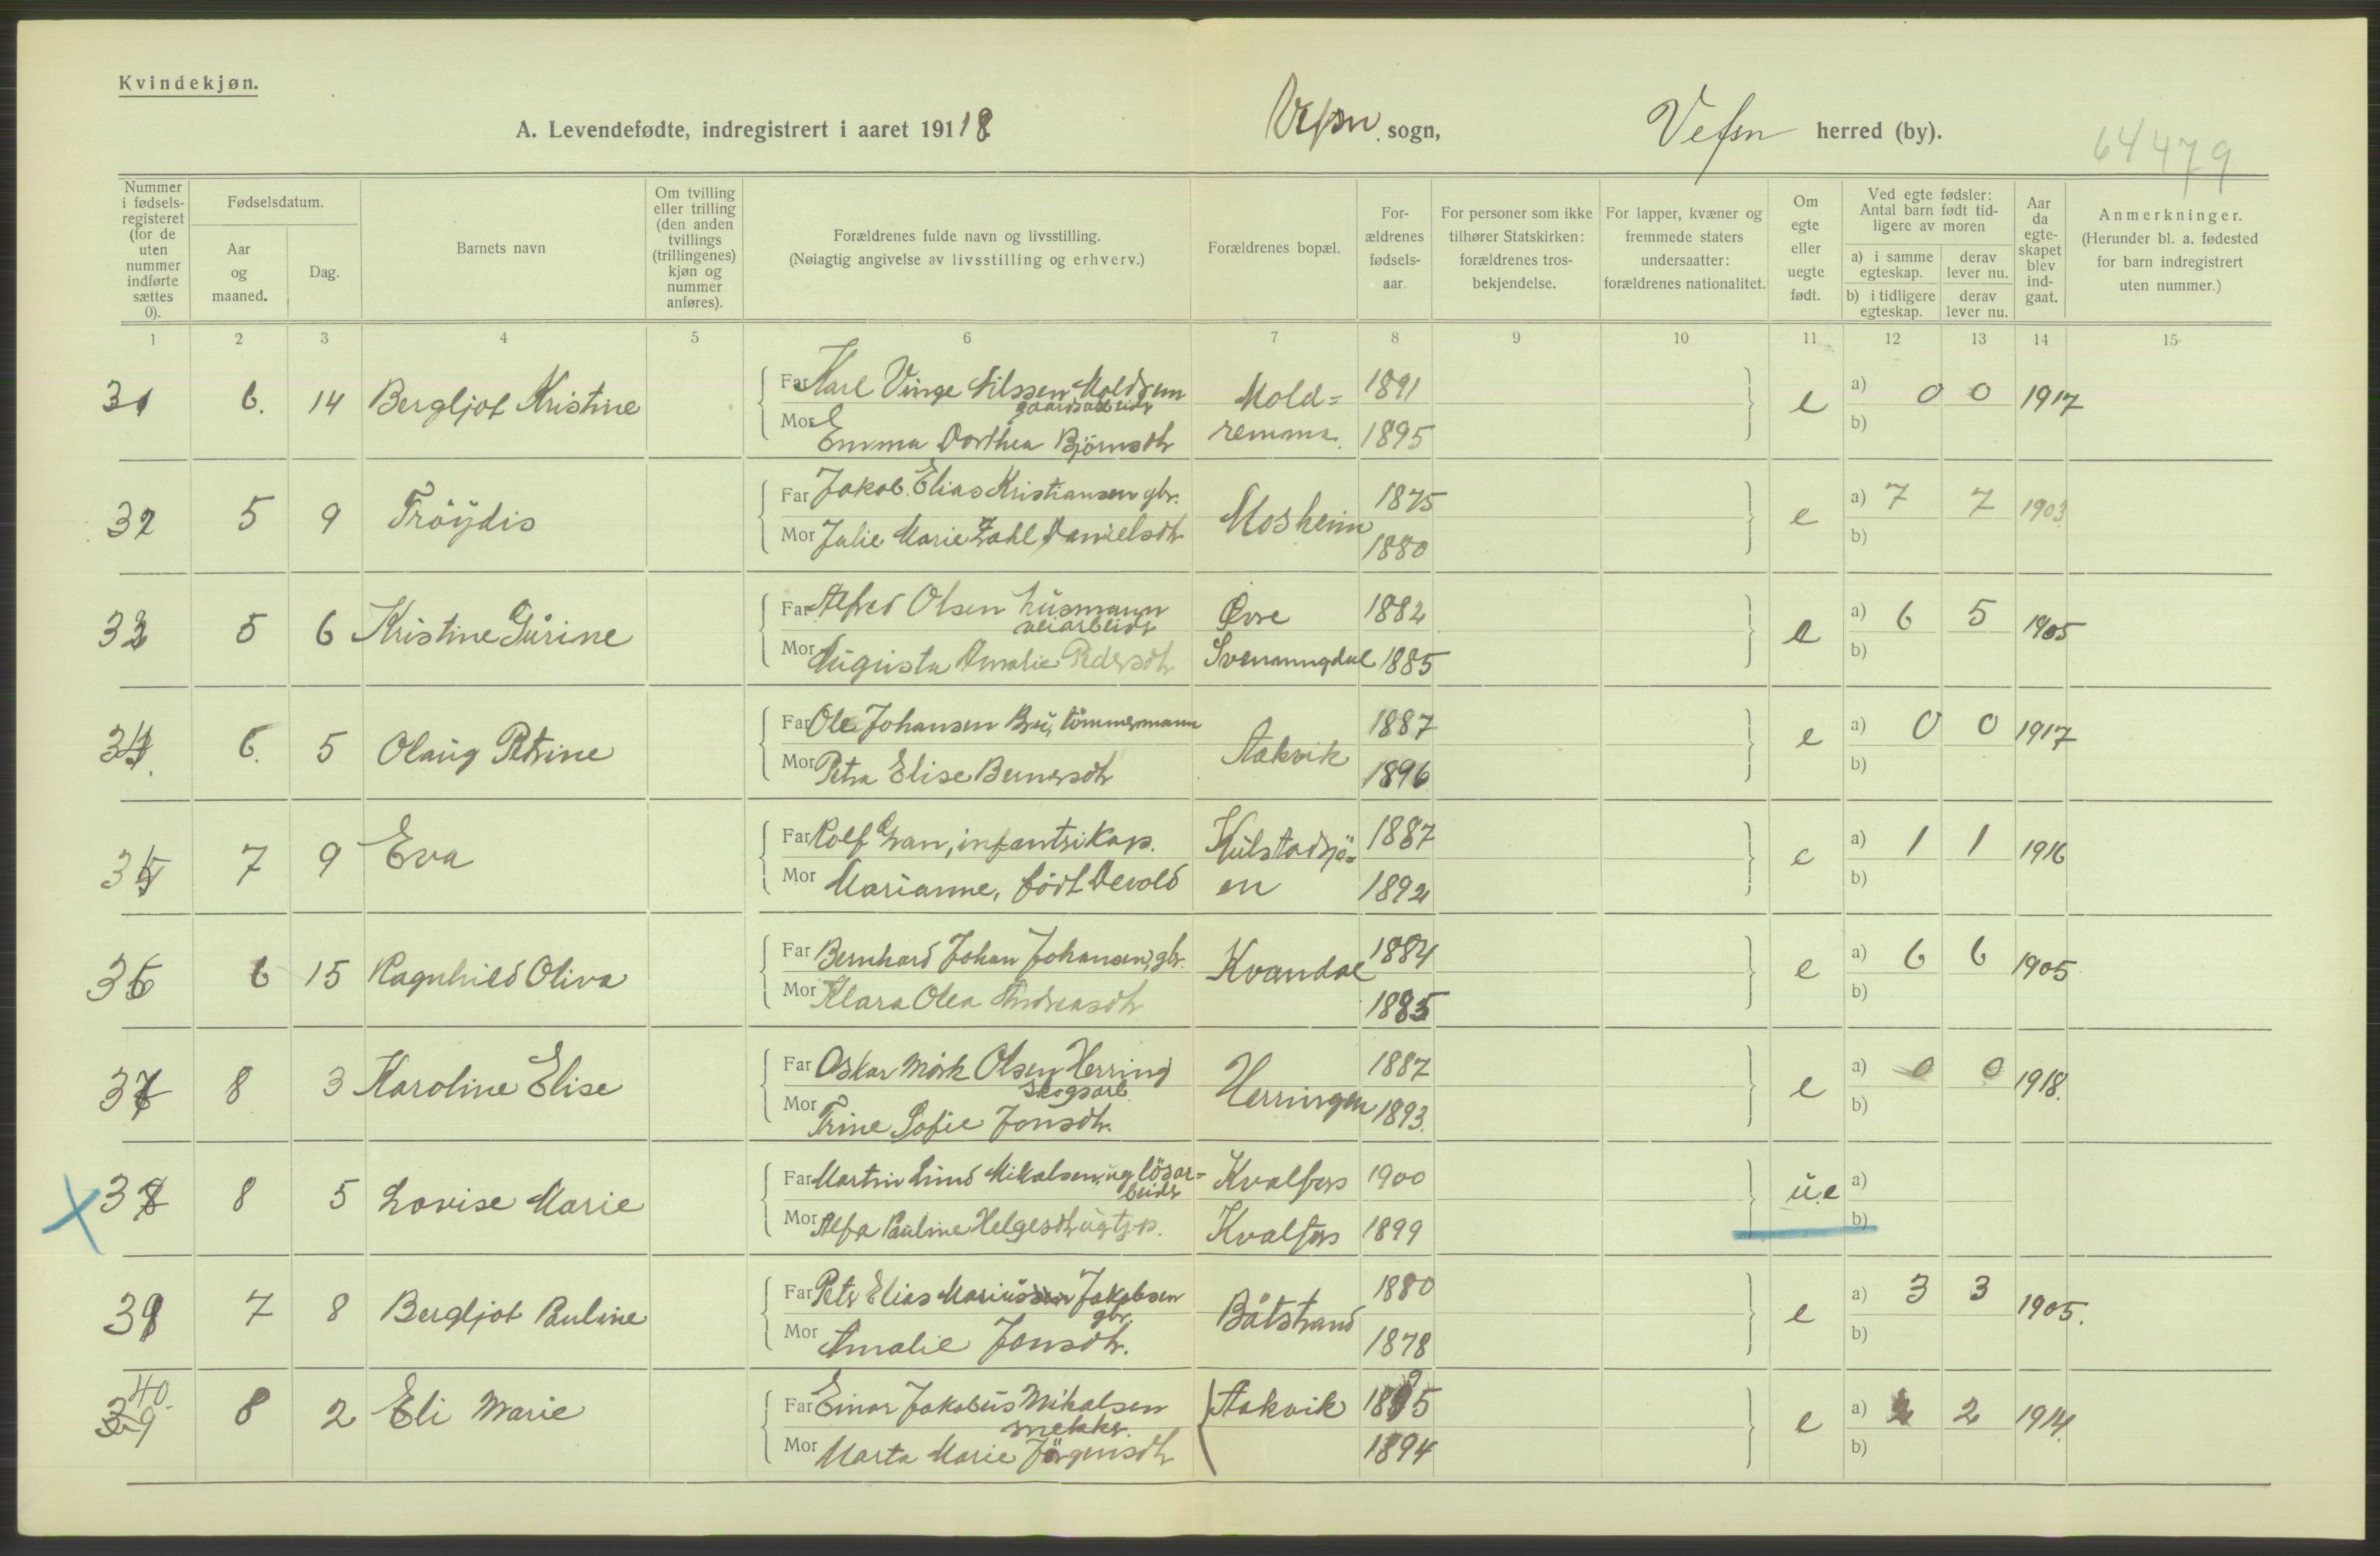 Kvindekjøn.
A. Levendefødte, indregistrert i aaret 191 18 Vefsn sogn, Vefsn herred (by).
64479
Nummer i fødselsregisteret (for de uten nummer indførte sættes 0).
Fødselsdatum.
Aar og maaned.
Dag.
Barnets navn
Om tvilling eller trilling (den anden tvillings (trillingenes) kjøn og nummer anføres).
Forældrenes fulde navn og livsstilling.
(Nøiagtig angivelse av livsstilling og erhverv.)
Forældrenes bopæl.
For-ældrenes fødsels-aar.
For personer som ikke tilhører Statskirken: forældrenes tros-bekjendelse.
For lapper, kvæner og fremmede staters undersaatter: forældrenes nationalitet.
Om egte eller uegte født.
Ved egte fødsler: Antal barn født tid-ligere av moren
a) i samme egteskap. derav lever nu.
b) i tidligere egteskap. derav lever nu.
Aar da egte-skapet blev ind-gaat.
Anmerkninger.
(Herunder bl. a. fødested for barn indregistrert uten nummer.)
1 2 3 4 5 6 7 8 9 10 11 12 13 14 15
31 6. 14 Bergljot Kristine Far Karl Vinge Nilssen Moldrem gaardsarbeider Mold= 1891 e a) 0 0 1917
Mor Emma Dorthea Björnsdtr remma. 1895 b)
32 5 9 Fröydis Far Jakob Elias Kristiansen gbr. Mosheim 1875 e a) 7 7 1903
Mor Julie Marie Zahl Danielsdtr 1880 b)
33 5 6 Kristine Gurine Far Alfred Olsen husmann veiarbeider Øvre 1882 e a) 6 5 1905
Mor Augusta Amalie Pedersdtr Svenningdal 1885 b)
34. 6. 5 Olaug Petrine Far Ole Johansen Bru, tömmermann Aakvik 1887 e a) 0 0 1917
Mor Petra Elise Bernersdtr 1896 b)
35 7 9 Eva Far Rolf Gran, infantrikap. Kulstadsjö- 1887 e a) 1 1 1916
Mor Marianne, född Devold en 1892 b)
36 6 15 Ragnhild Oliva Far Bernhard Johan Johansen, gbr. Kvandal 1884 e a) 6 6 1905
Mor Klara Olea Andreasdtr 1885 b)
37 8 3 Karoline Elise Far Oskar Mörk Olsen Herring skogsarb. Herringen 1887 e a) 0 0 1918.
Mor Trine Sofie Jonsdtr. 1893. b)
X 38 8 5 Lovise Marie Far Martin Lund Mikalsen, ug lösar=beider Kvalfors 1900 u.e a)
Mor Alfa Pauline Helgesdtr ug tj.p. Kvalfors 1899 b)
39 7 8 Bergljot Pauline Far Peter Elias Mariussen Jakobsen gbr. Båtstrand 1880 e a) 3 3 1905.
Mor Amalie Jonsdtr. 1878 b)
40. 39 8 2 Eli Marie Far Einar Jakobus Mikalsen snekker. Aakvik 1895 e a) 2 2 1914.
Mor Marta Marie Jörgensdtr 1894 b)